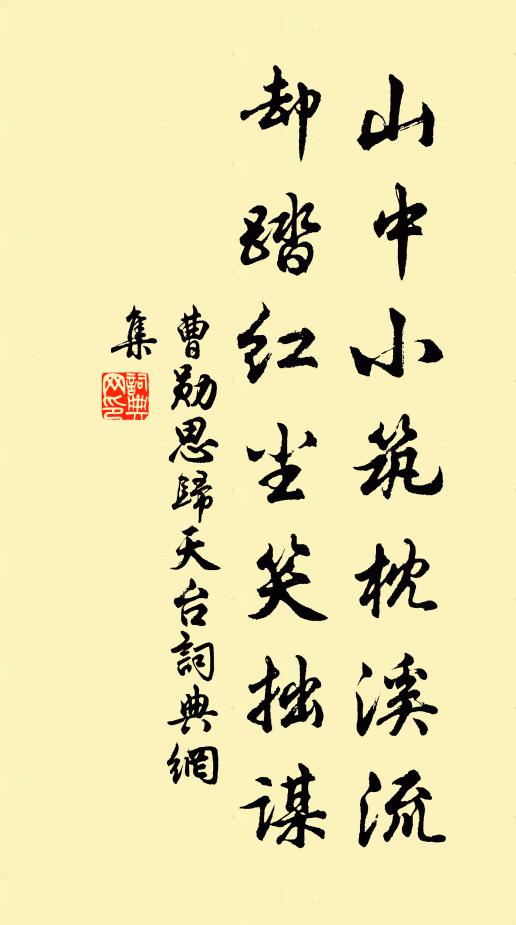 山中小筑枕溪流
却踏红尘笑拙谋
曹勋思歸天台詞典網
集
詞典
网印